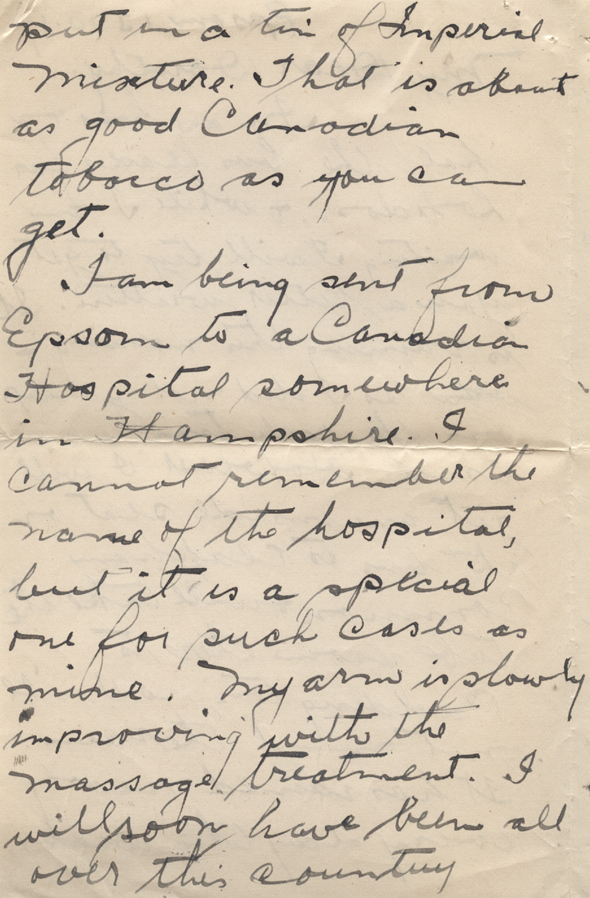 put in a tin of Imperial
Mixture. That is about
as good Canadian
tobacco as you can
get.
I am being sent from
Epsom to a Canadian
Hospital somewhere
in Hampshire. I
cannot remember the
name of the hospital,
but it is a special
one for such cases as
mine. My arm is slowly
improving with the
massage treatment. I
will soon have been all
over this country